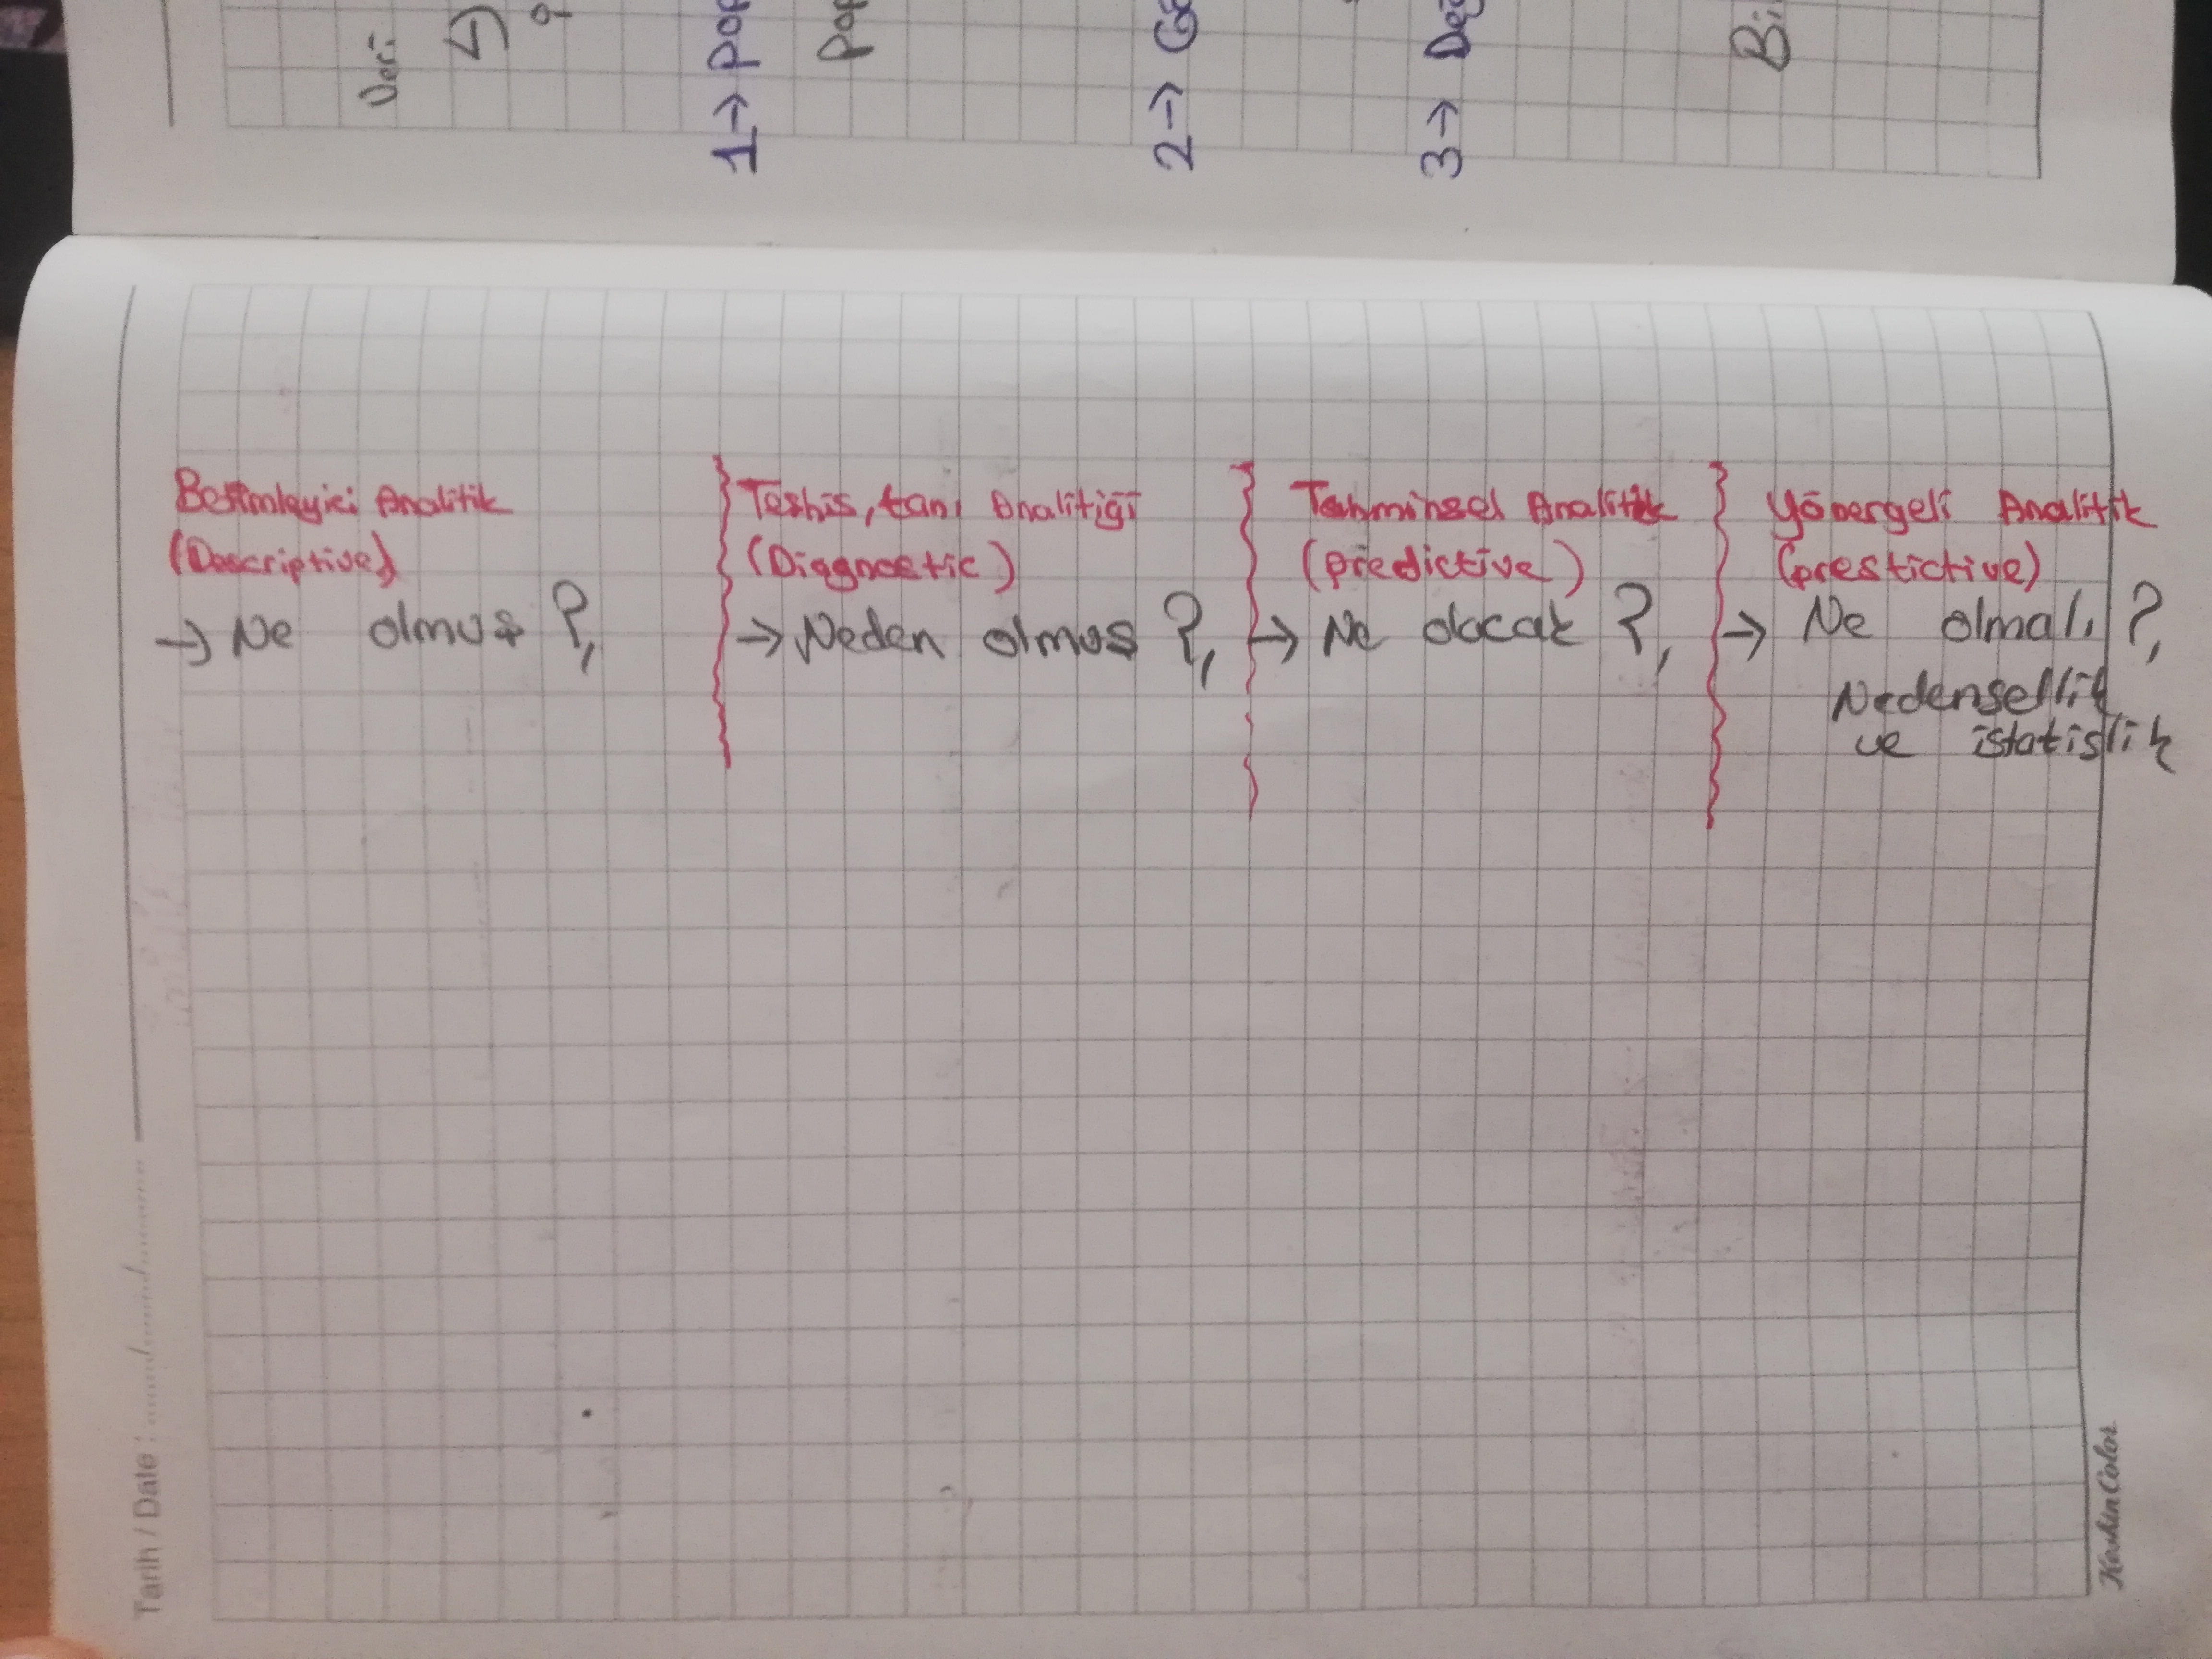 Veri
1→ pop
pop
2→
3→ Değ
Bi
Betimleyici Analitik
(Descriptive)
→ Ne olmuş ?,
Teshis, tanı Analitiği
(Diagnostic)
→ Neden olmuş ?,
Tahminsel Analitik
(predictive)
→ Ne olacak ?,
Yönergeli Analitik
(prestictive)
→ Ne olmalı ?,
Nedensellik
ve istatislik
Tarih / Date : ....../....../......
KeskinColor